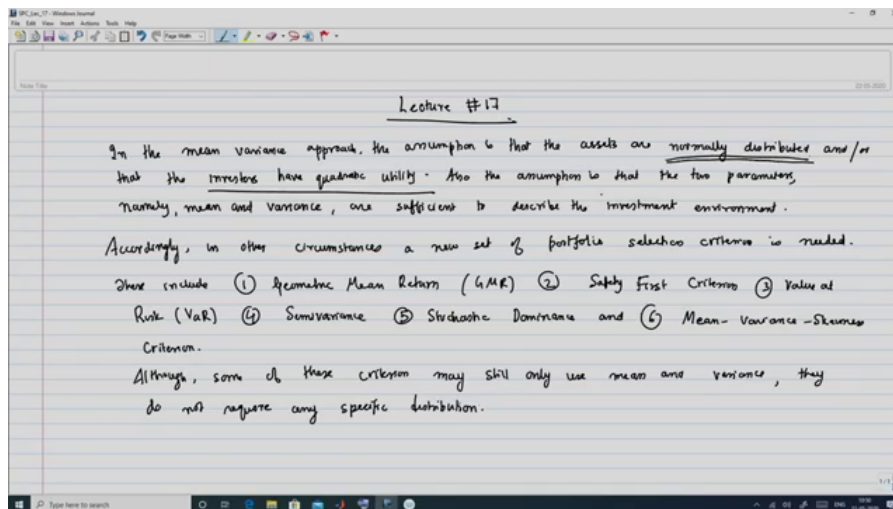 SPC_Lec_17 - Windows Journal
File Edit View Insert Actions Tools Help
Page Width
Note Title
22-05-2020
Lecture #17
In the mean variance approach, the assumption is that the assets are normally distributed and/or
that the investors have quadratic utility. Also the assumption is that the two parameters,
namely, mean and variance, are sufficient to describe the investment environment.
Accordingly, in other circumstances a new set of portfolio selection criterion is needed.
These include ① Geometric Mean Return (GMR) ② Safety First Criterion ③ Value at
Risk (VaR) ④ Semivariance ⑤ Stochastic Dominance and ⑥ Mean-Variance-Skewness
Criterion.
Although, some of these criterion may still only use mean and variance, they
do not require any specific distribution.
1/1
Type here to search
ENG
10:50